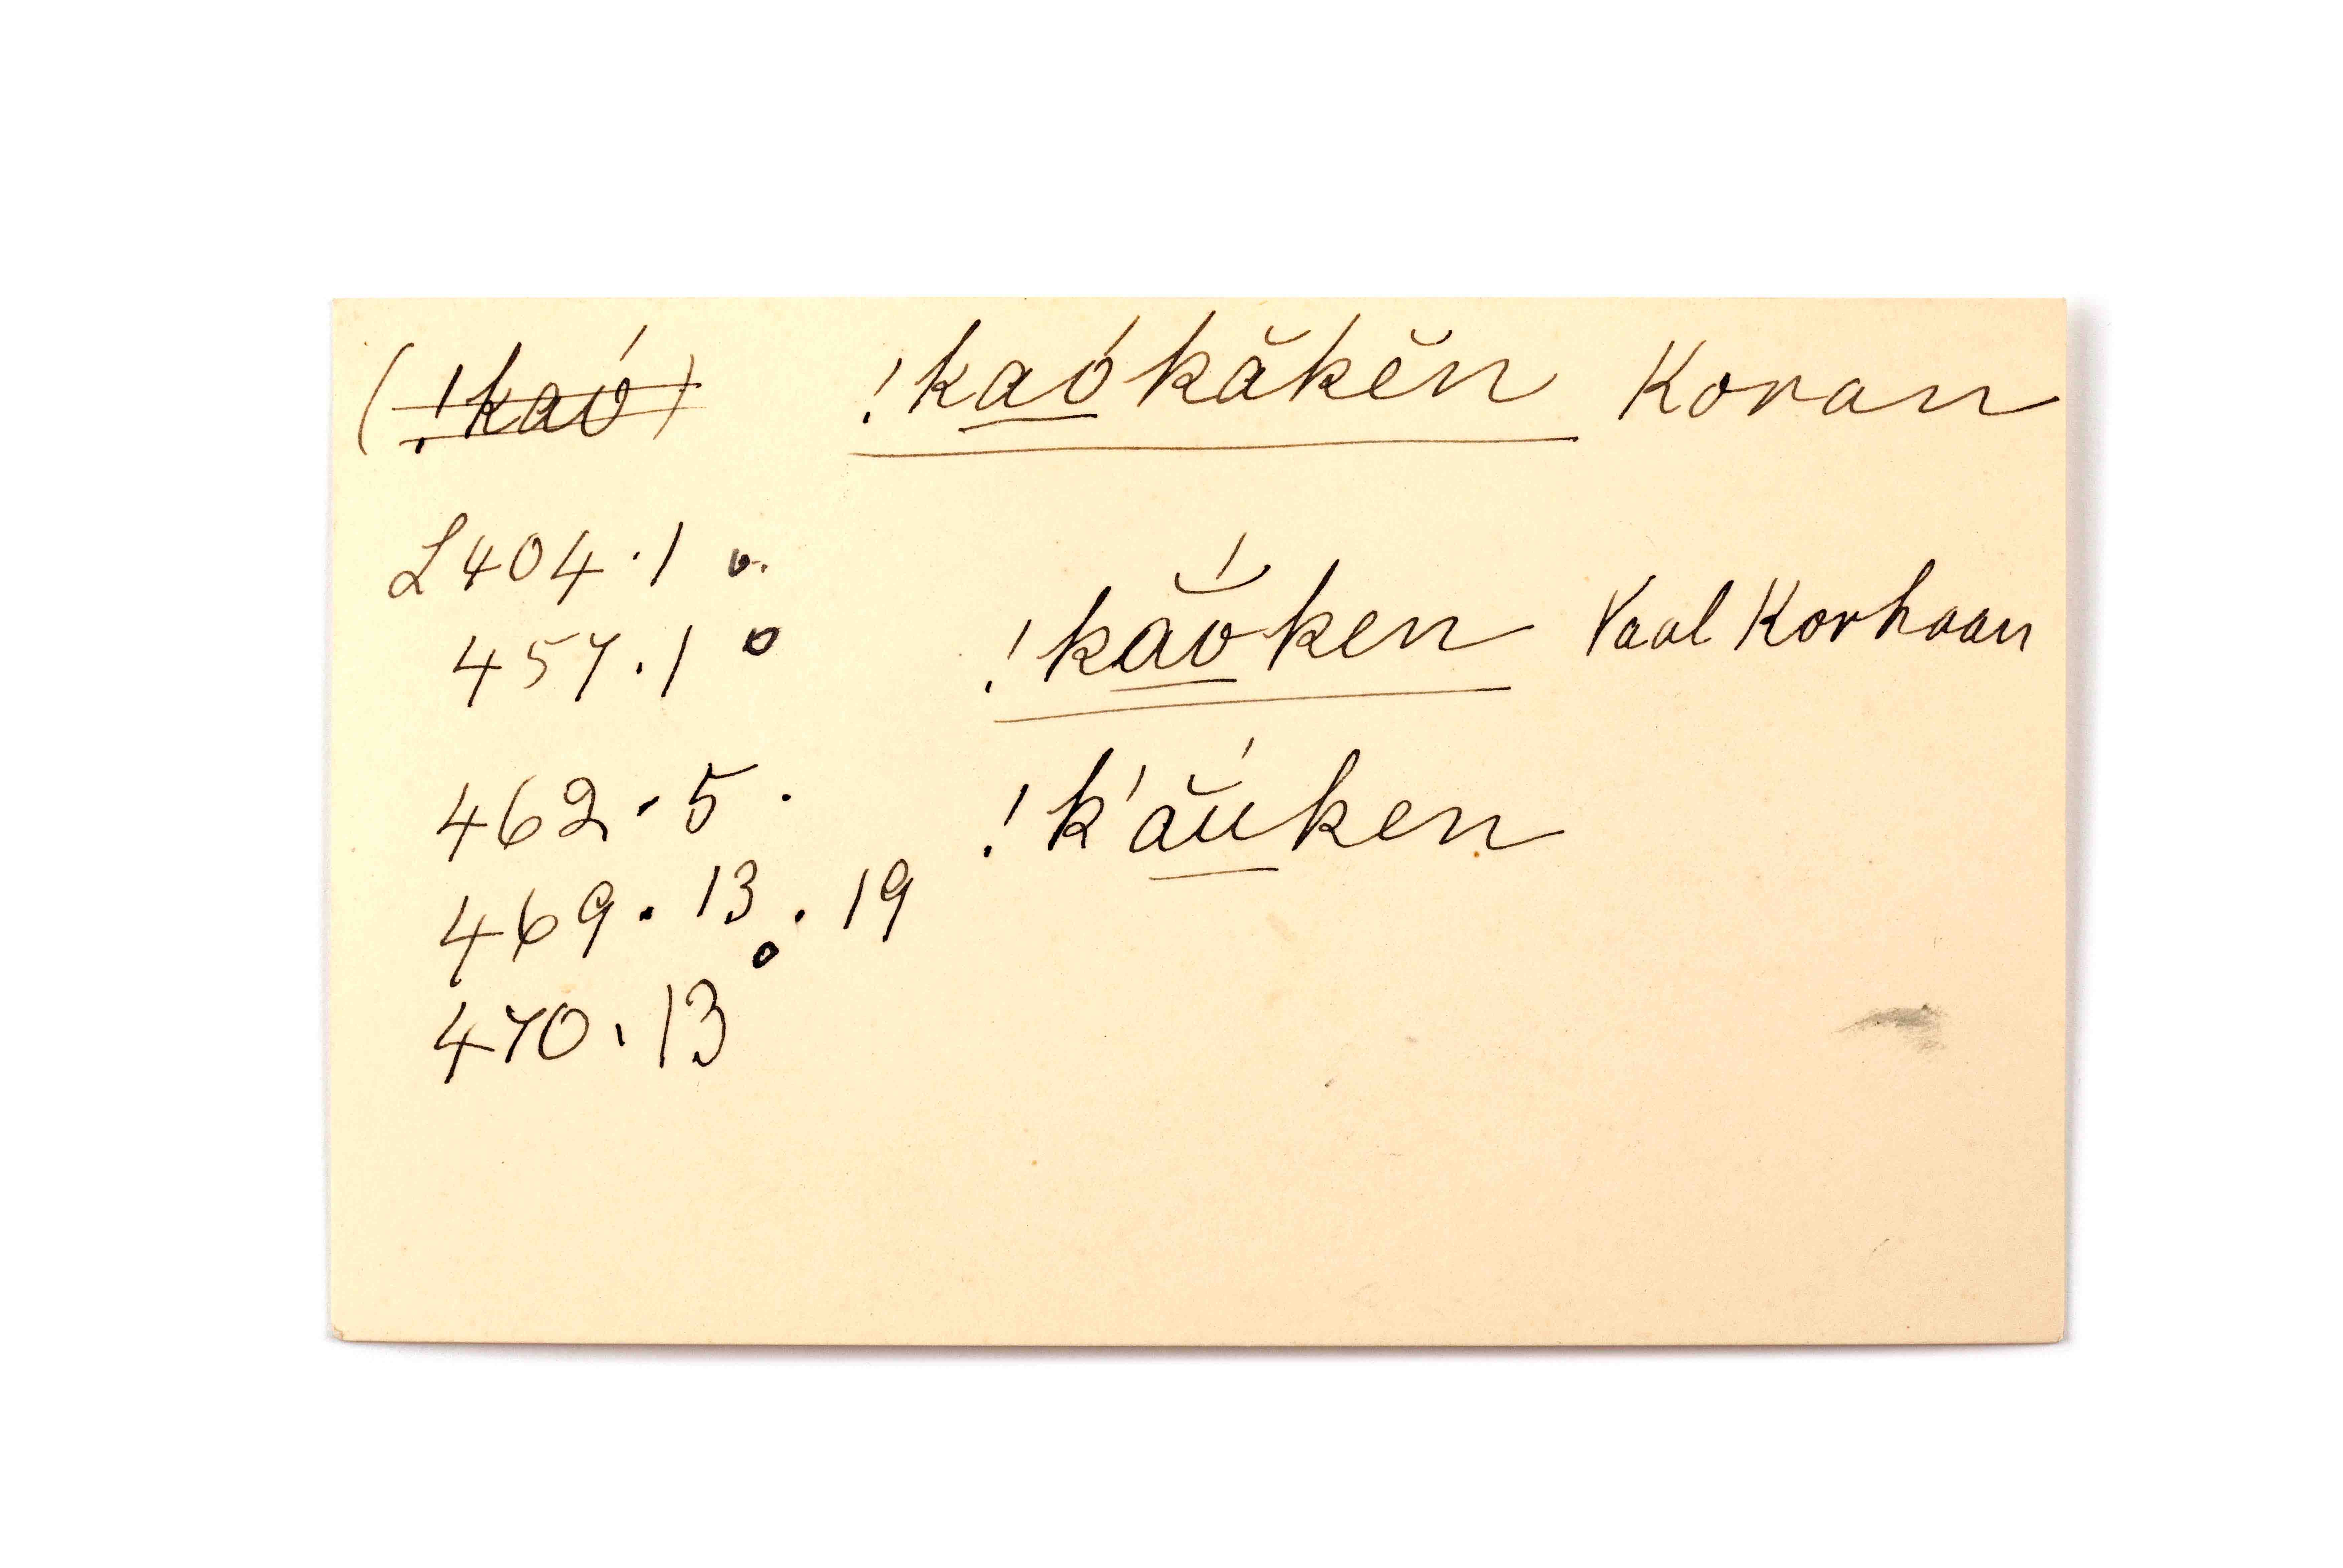 (!kaó) !kaókăkĕn Koran
L404.1 o.
457.1 o !kăó̆ken Vaal Korhaan
462.5. !k'ăúken
469.13.19
o
470.13